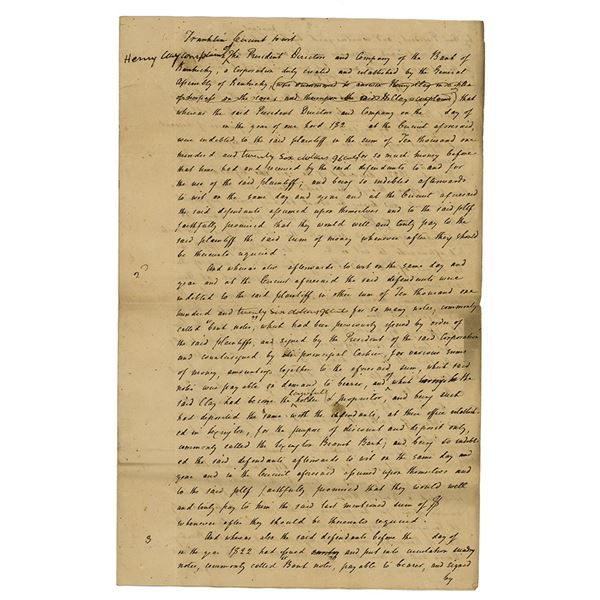 Franklin Circuit court
Henry Clay complains of The President Directors and Company of the Bank of
Kentucky, a Corporation duly created and established by the General
Assembly of Kentucky, (who summoned to answer Henry Clay in a plea
of trespass on the case; and thereupon the said H. Clay complains) that
whereas the said President Directors and Company on the day of
in the year of our Lord 182 at the Circuit aforesaid,
were indebted to the said plaintiff in the sum of Ten thousand one
hundred and twenty Six dollars for so much money before
that time had and received by the said defendants to and for
the use of the said plaintiff; and being so indebted afterwards
to wit on the same day and year and at the Circuit aforesaid
the said defendants assumed upon themselves and to the said pltff
faithfully promised that they would well and truly pay to the
said plaintiff the said sum of money whenever after they should
be thereunto required
2 And whereas also afterwards to wit on the same day and
year and at the Circuit aforesaid the said defendants were
indebted to the said plaintiff in other sum of Ten thousand one
hundred and twenty Six dollars for so many notes, commonly
called "bank notes", which had been previously issued by order of
the said plaintiffs, and signed by the President of the said Corporation
and countersigned by the principal Cashier, for various sums
of money, amounting together to the aforesaid sum, which said
notes were payable on demand to bearer, and of which the
said Clay had become the lawful holder & proprietor, and being such
had deposited the same with the defendants, at their office establish-
ed in Lexington, for the purpose of discount and deposit only,
commonly called the Lexington Branch Bank; and being so indebt-
ed the said defendants afterwards to wit on the same day and
year and in the Circuit aforesaid assumed upon themselves and
to the said pltff faithfully promised that they would well
and truly pay to him the said last mentioned sum of
whenever after they should be thereunto required.
3 And whereas also the said defendants before the day of
in the year 1822 had issued and put into circulation sundry
notes, commonly called Bank notes, payable to bearer, and signed
by